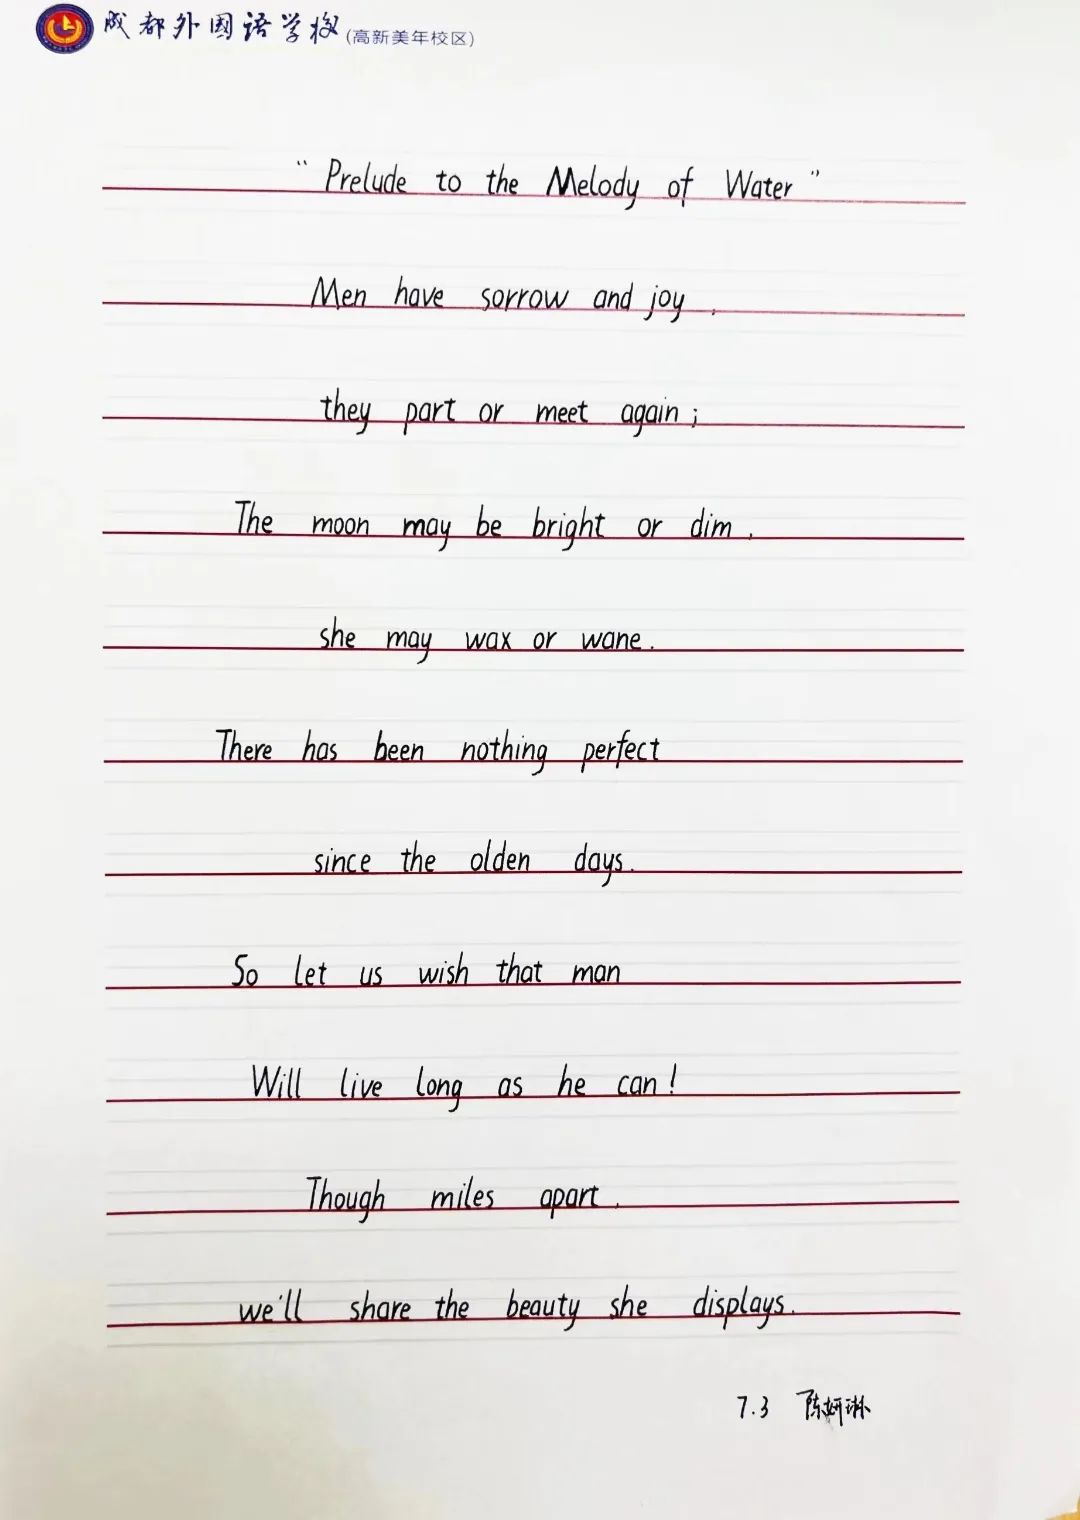 成都外国语学校(高新美年校区)
"Prelude to the Melody of Water"
Men have sorrow and joy,
they part or meet again;
The moon may be bright or dim,
she may wax or wane.
There has been nothing perfect
since the olden days.
So let us wish that man
Will live long as he can!
Though miles apart,
we'll share the beauty she displays.
7.3 陈妍琳